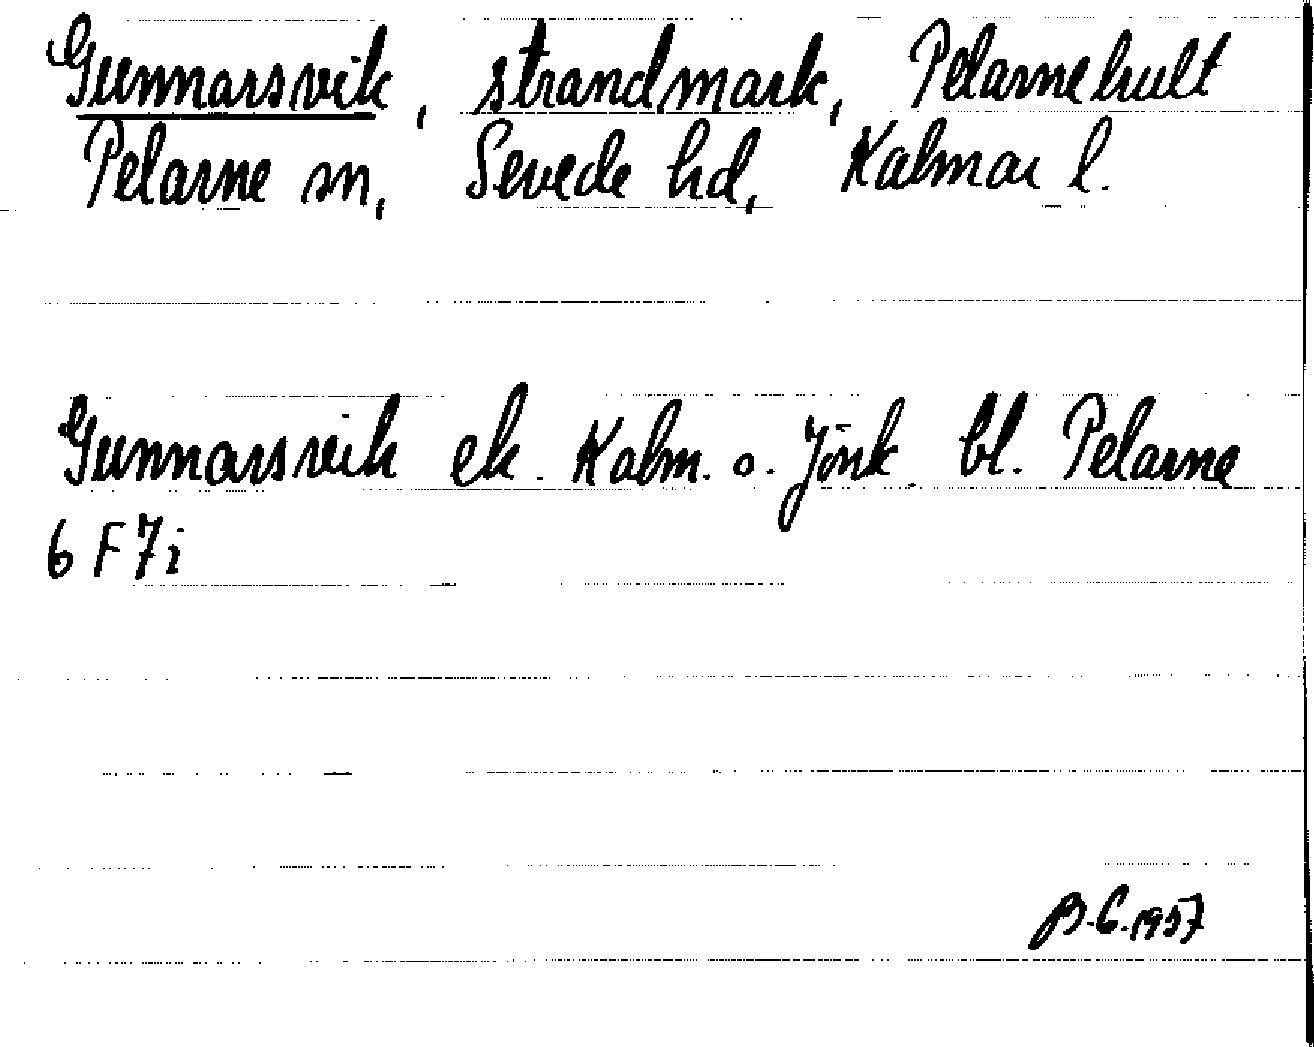 Gunnarsvik, strandmark, Pelarnehult
Pelarne sn, Sevede hd, Kalmar l.
Gunnarsvik ek. Kalm. o. Jönk. bl. Pelarne
6 F 7 i
B.C. 1957